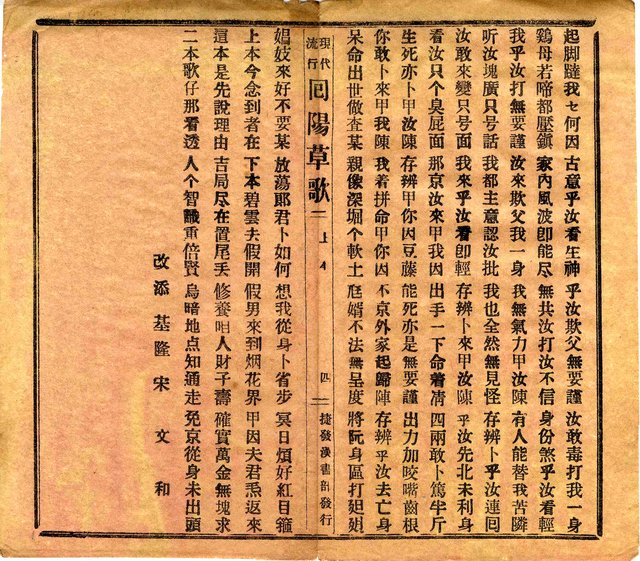 起脚躂我乜何因 古意乎汝看生神 乎汝欺父無要謹 汝敢毒打我一身
鷄母若啼都壓鎮 家內風波卽能尽 無共汝打汝不信 身份煞乎汝看輕
我乎汝打無要謹 汝來欺父我一身 我無氣力甲汝陳 有人能替我苦隣
听汝塊廣只号話 我都主意認汝批 我也全然無見怪 存辦卜乎汝連囘
汝敢來變只号面 我來乎汝看卽輕 存辦卜來甲汝陳 乎汝先北未利身
看汝只个臭屁面 那京汝來甲我因 出手一下命着凊 四兩敢卜篤半斤
生死亦卜甲汝陳 存辦甲你因豆藤 能死亦是無要謹 出力加咬嘴齒根
你敢卜來甲我陳 我着拼命甲你因 不京外家起歸陣 存辦乎汝去亡身
呆命出世做查某 親像深堀个軟土 尫婿不法無呈度 將阮身區打廻廻
現代流行 囘陽草歌 上本 四 捷發漢書部發行
娼妓來好不要某 放蕩郎君卜如何 想我從身卜省步 冥日煩好紅日箍
上本今念到者在 下本碧雲夫假開 假男來到烟花界 甲因夫君炁返來
這本是先說理由 吉局尽在置尾丢 修養咱人財子壽 確實萬金無塊求
二本歌仔那看透 人个智識重倍賢 烏暗地点知通走 免京從身未出頭
改添 基隆 宋文和